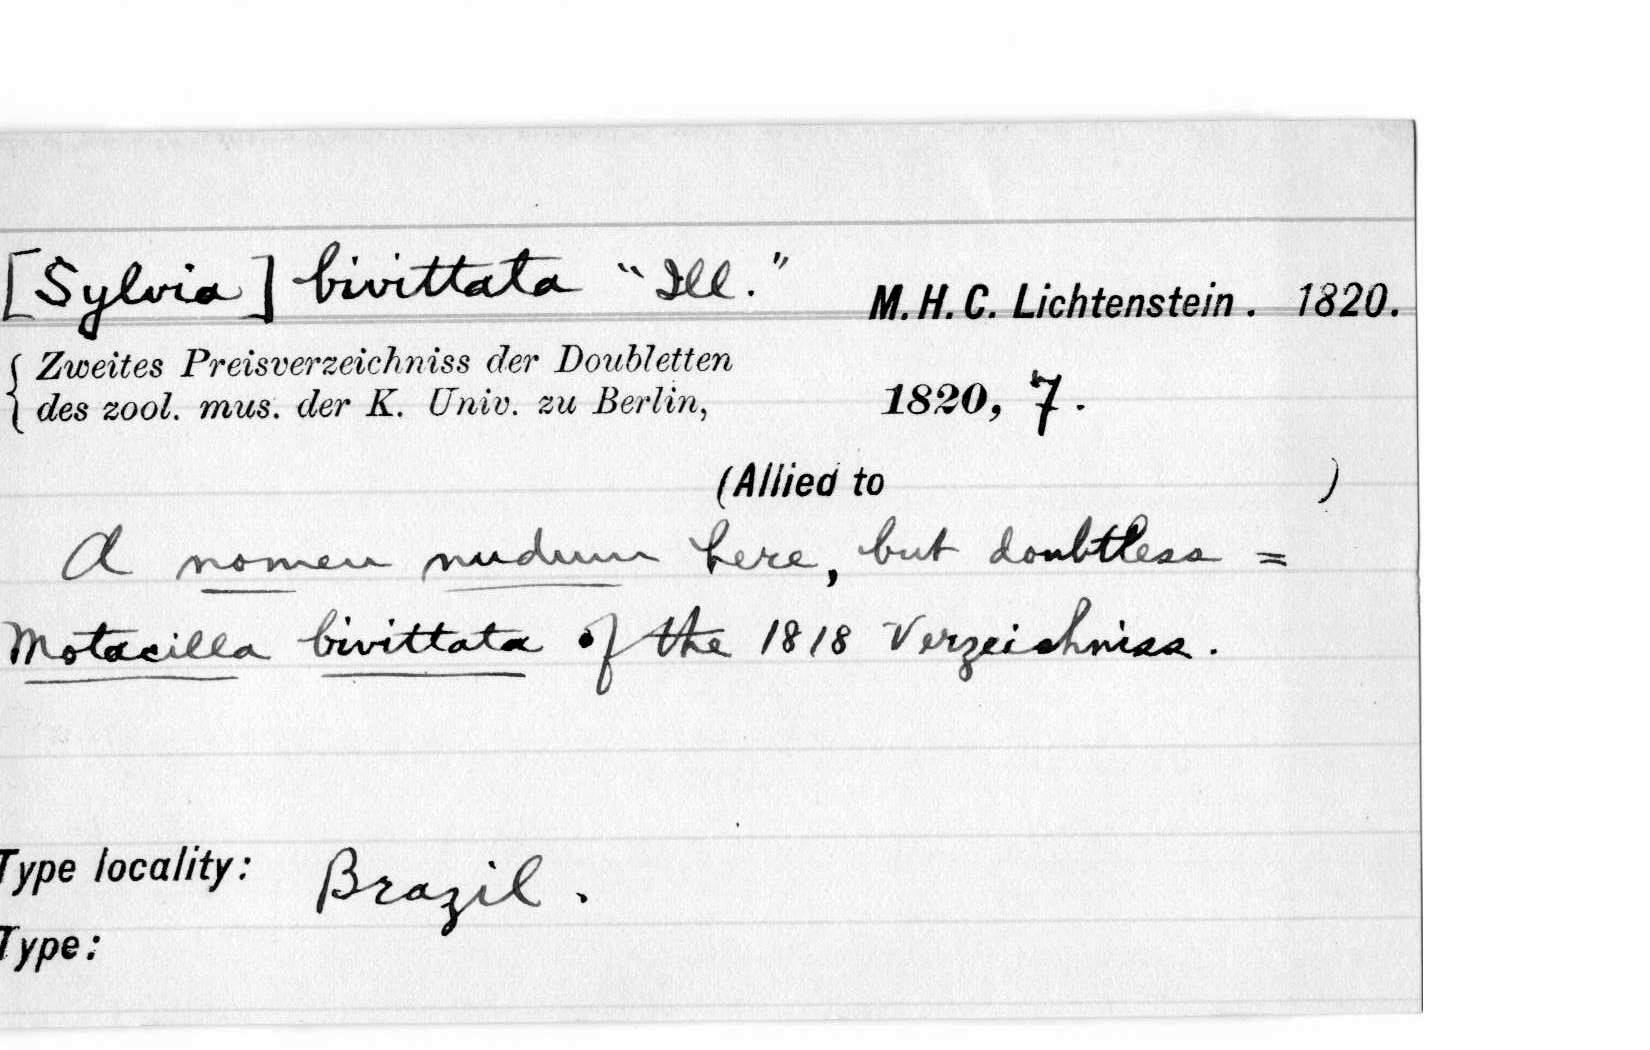 [Sylvia] bivittata "Ill." M. H. C. Lichtenstein. 1820.
Zweites Preisverzeichniss der Doubletten
des zool. mus. der K. Univ. zu Berlin, 1820, 7.
(Allied to )
A nomen nudum here, but doubtless =
Motacilla bivittata of the 1818 Verzeichniss.
Type locality: Brazil.
Type: